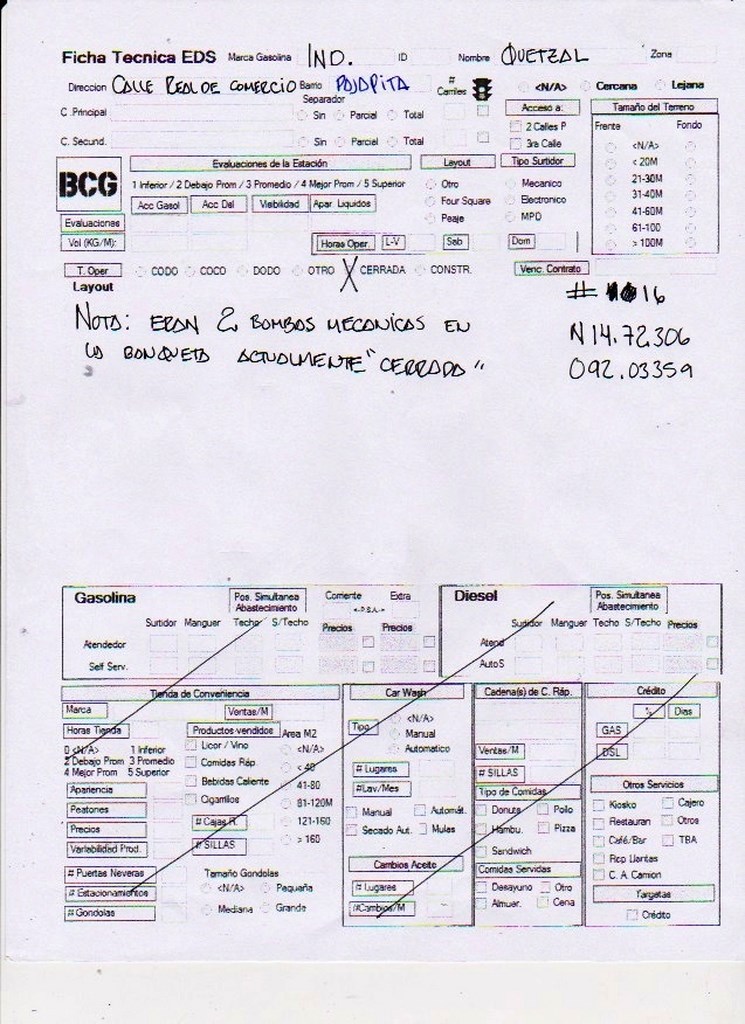 Ficha Tecnica EDS Marca Gasolina IND. ID Nombre QUETZAL Zona
Direccion CALLE REAL DE COMERCIO Barrio PAJAPITA # Carriles <N/A> Cercana Lejana
Separador
C .Principal Sin Parcial Total
C. Secund. Sin Parcial Total
Acceso a:
2 Calles P
3ra Calle
Tamaño del Terreno
Frente Fondo
<N/A>
< 20M
21-30M
31-40M
41-60M
61-100
> 100M
BCG
Evaluaciones de la Estación
1 Inferior / 2 Debajo Prom / 3 Promedio / 4 Mejor Prom / 5 Superior
Acc Gasol Acc Del Visibilidad Apar. Liquidos
Evaluaciones
Vol (KG/M):
Layout
Otro
Four Square
Peaje
Tipo Surtidor
Mecanico
Electronico
MPD
Horas Oper. L-V Sab Dom
T. Oper CODO COCO DODO OTRO X CERRADA CONSTR. Venc. Contrato
Layout
# 16
NOTA: ERAN 2 BOMBAS MECANICAS EN
LA BANQUETA ACTUALMENTE "CERRADA"
N14.72306
092.03359
Gasolina
Pos. Simultanea
Abastecimiento
Corriente Extra
<-P.S.A.->
Surtidor Manguer Techo S/Techo Precios Precios
Atendedor
Self Serv.
Diesel
Pos. Simultanea
Abastecimiento
Surtidor Manguer Techo S/Techo Precios
Atend
AutoS
Tienda de Conveniencia
Marca Ventas/M
Horas Tienda Productos vendidos Area M2
0 <N/A> 1 Inferior
2 Debajo Prom 3 Promedio
4 Mejor Prom 5 Superior
Apariencia
Peatones
Precios
Variabilidad Prod.
# Puertas Neveras
# Estacionamientos
# Gondolas
Licor / Vino
Comidas Ráp.
Bebidas Caliente
Cigarrillos
# Cajas R.
# SILLAS
<N/A>
< 40
41-80
81-120M
121-160
> 160
Tamaño Gondolas
<N/A> Pequeña
Mediana Grande
Car Wash
Tipo
<N/A>
Manual
Automatico
# Lugares
#Lav/Mes
Manual Automát.
Secado Aut. Mulas
Cambios Aceite
# Lugares
#Cambios/M
Cadena(s) de C. Ráp.
Ventas/M
# SILLAS
Tipo de Comidas
Donuts Pollo
Hambu. Pizza
Sandwich
Comidas Servidas
Desayuno Otro
Almuer. Cena
Crédito
% Dias
GAS
DSL
Otros Servicios
Kiosko Cajero
Restauran Otros
Café/Bar TBA
Rep Llantas
C. A. Camion
Targetas
Crédito